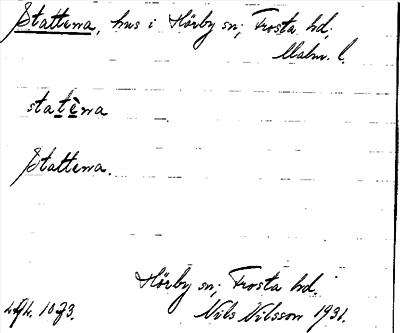 Stattena, hus i Hörby sn; Frosta hd;
Malm. l.
statèna
Stattena.
Hörby sn; Frosta hd.
Nils Nilsson 1931.